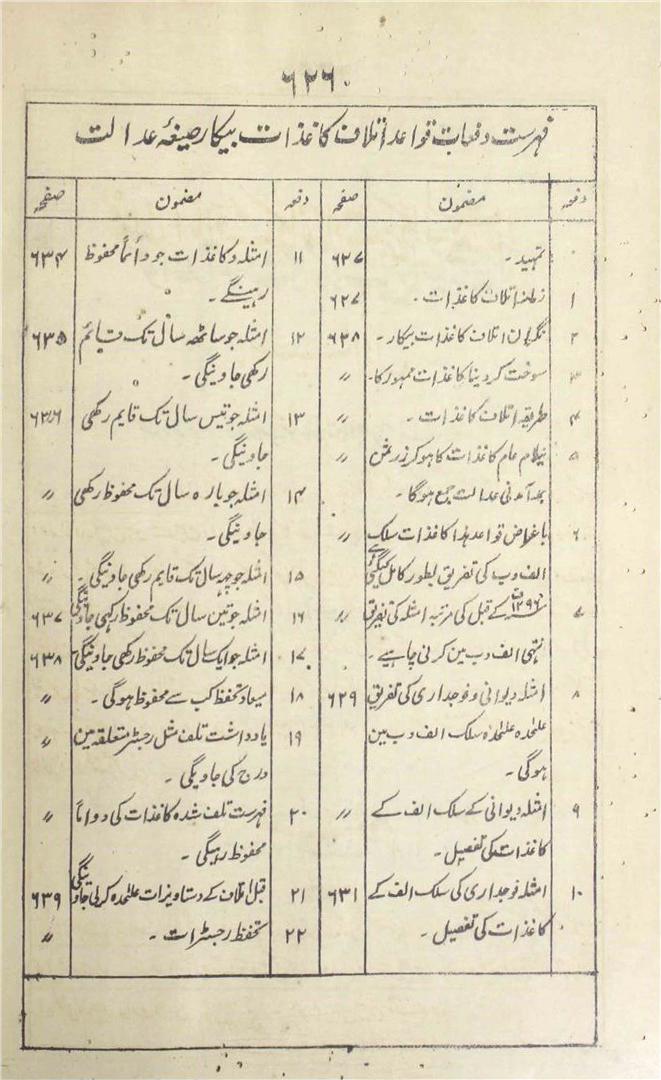 ۶۲۶
فہرست دفعات قواعد اتلاف کاغذات بیکار صیغۂ عدالت
دفعہ مضمون صفحہ
۰ تمہید۔ ۶۲۷
۱ زمانہ اتلاف کاغذات۔ ۶۲۷
۲ نگران اتلاف کاغذات بیکار۔ ۶۲۸
۳ سوخت کردینا کاغذات ممہورکا۔ 〃
۴ طریقہ اتلاف کاغذات۔ 〃
۵ نیلام عام کاغذات کا ہوکر زرثمن 〃
بمد آمدنی عدالت جمع ہوگا۔
۶ باغراض قواعد ہذا کاغذات سلک 〃
الف وب کی تفریق بطور کامل کیگئی ہے
۷ ۱۲۹۶ف کے قبل کی مرتبہ امثلہ کی تفریق 〃
نتہی الف وب مین کرنی چاہیے۔
۸ امثلہ دیوانی وفوجداری کی تفریق ۶۲۹
علیحدہ علیحدہ سلک الف وب مین
ہوگی۔
۹ امثلہ دیوانی کے سلک الف کے 〃
کاغذات کی تفصیل۔
۱۰ امثلہ فوجداری کی سلک الف کے ۶۳۱
کاغذات کی تفصیل۔
دفعہ مضمون صفحہ
۱۱ امثلہ وکاغذات جو دائماً محفوظ ۶۳۴
رہینگے۔
۱۲ امثلہ جو ساٹھہ سال تک قائم ۶۳۵
رکھی جاوینگی۔
۱۳ امثلہ جو تیس سال تک قایم رکھی ۶۳۶
جاوینگی۔
۱۴ امثلہ جو بارہ سال تک محفوظ رکھی 〃
جاوینگی۔
۱۵ امثلہ جو چہہ سال تک قایم رکھی جاوینگی۔ 〃
۱۶ امثلہ جو تین سال تک محفوظ رکھی جاوینگی ۶۳۷
۱۷ امثلہ جو ایک سال تک محفوظ رکھی جاوینگی ۶۳۸
۱۸ میعاد تحفظ کب سے محفوظ ہوگی۔ 〃
۱۹ یادداشت تلف مثل رجسٹر متعلقہ مین 〃
درج کی جاویگی۔
۲۰ فہرست تلف شدہ کاغذات کی دواماً 〃
محفوظ رہیگی۔
۲۱ قبل اتلاف کے دستاویزات علیحدہ کرلی جاوینگی ۶۳۹
۲۲ تحفظ رجسٹرات۔ 〃